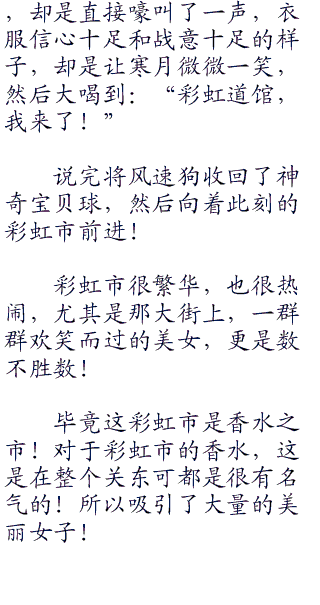 ，却是直接嚎叫了一声，衣
服信心十足和战意十足的样
子，却是让寒月微微一笑，
然后大喝到：“彩虹道馆，
我来了！”
说完将风速狗收回了神
奇宝贝球，然后向着此刻的
彩虹市前进！
彩虹市很繁华，也很热
闹，尤其是那大街上，一群
群欢笑而过的美女，更是数
不胜数！
毕竟这彩虹市是香水之
市！对于彩虹市的香水，这
是在整个关东可都是很有名
气的！所以吸引了大量的美
丽女子！